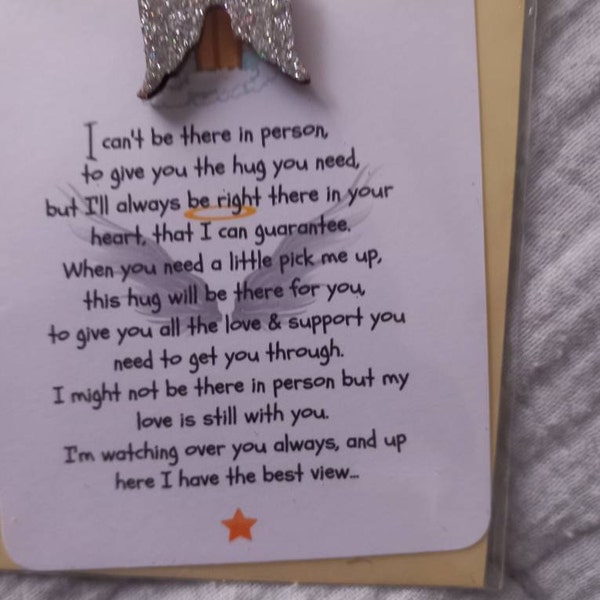 I can't be there in person,
to give you the hug you need,
but I'll always be right there in your
heart, that I can guarantee.
When you need a little pick me up,
this hug will be there for you,
to give you all the love & support you
need to get you through.
I might not be there in person but my
love is still with you.
I'm watching over you always, and up
here I have the best view...